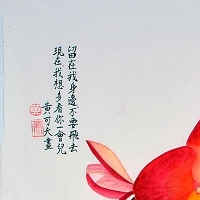 留在我身邊不要飛去
現在我想多看你一會兒
黃可夫畫